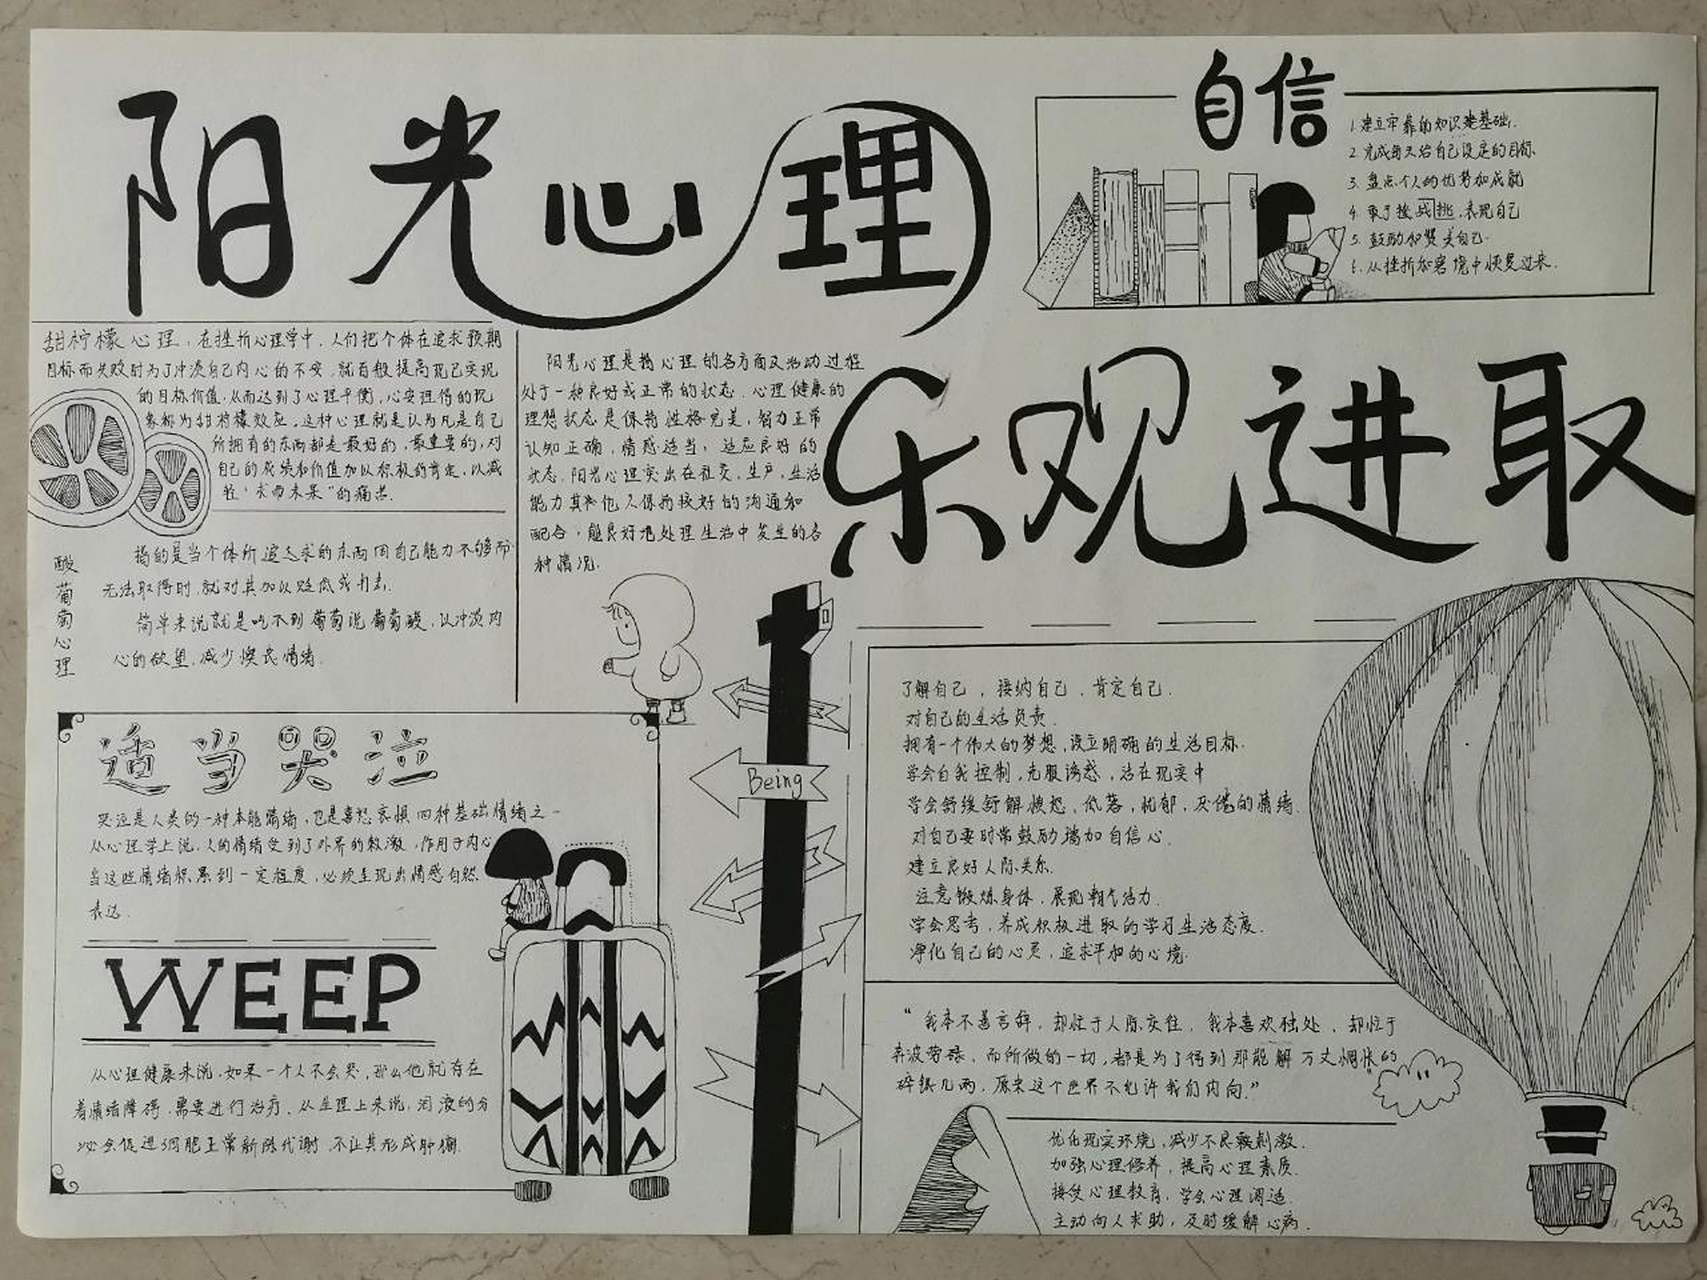 阳光心理
乐观进取
自信
1.建立牢靠的知识建基础.
2.完成每天给自己设定的目标.
3.盘点个人的优势和成就
4.敢于挫战挑,表现自己
5.鼓励和赞美自己.
6.从挫折和窘境中恢复过来.
甜柠檬心理:在挫折心理学中,人们把个体在追求预期
目标而失败时为了冲淡自己内心的不安,就百般提高现已实现
的目标价值.从而达到了心理平衡,心安理得的现
象称为甜柠檬效应,这种心理就是认为凡是自己
所拥有的东西都是最好的,最重要的,对
自己的成绩和价值加以积极的肯定,以减
轻"求而未果"的痛苦.
酸葡萄心理
指的是当个体所追求的东西因自己能力不够而
无法取得时,就对其加以贬低或打击.
简单来说就是吃不到葡萄说葡萄酸,以冲淡内
心的欲望,减少懊丧情绪.
阳光心理是指心理的各方面及活动过程
处于一种良好或正常的状态.心理健康的
理想状态是保持性格完美,智力正常
认知正确,情感适当,适应良好的
状态.阳光心理突出在社交,生产,生活
能力其和他人保持较好的沟通和
配合,能良好地处理生活中发生的各
种情况.
适当哭泣
哭泣是人类的一种本能情绪,也是喜怒哀惧四种基础情绪之一
从心理学上说,人的情绪受到了外界的刺激,作用于内心
当这些情绪积累到一定程度,必须呈现出情感自然
表达.
WEEP
从心理健康来说,如果一个人不会哭,那么他就存在
着情绪障碍.需要进行治疗.从生理上来说,泪液的分
泌会促进细胞正常新陈代谢.不让其形成肿瘤.
Being
了解自己,接纳自己,肯定自己.
对自己的生活负责.
拥有一个伟大的梦想,设立明确的生活目标.
学会自我控制,克服诱惑,活在现实中
学会舒缓舒解愤怒,低落,忧郁,厌倦的情绪.
对自己要时常鼓励增加自信心.
建立良好人际关系.
注意锻炼身体,展现朝气活力.
学会思考,养成积极进取的学习生活态度.
净化自己的心灵,追求平和的心境.
"我本不善言辞,却忙于人际交往,我本喜欢独处,却忙于
奔波劳碌,而所做的一切,都是为了得到那能解万丈惆怅的
碎银几两,原来这个世界不允许我们内向."
优化现实环境,减少不良刺激.
加强心理修养,提高心理素质.
接受心理教育,学会心理调适.
主动向人求助,及时缓解心病.